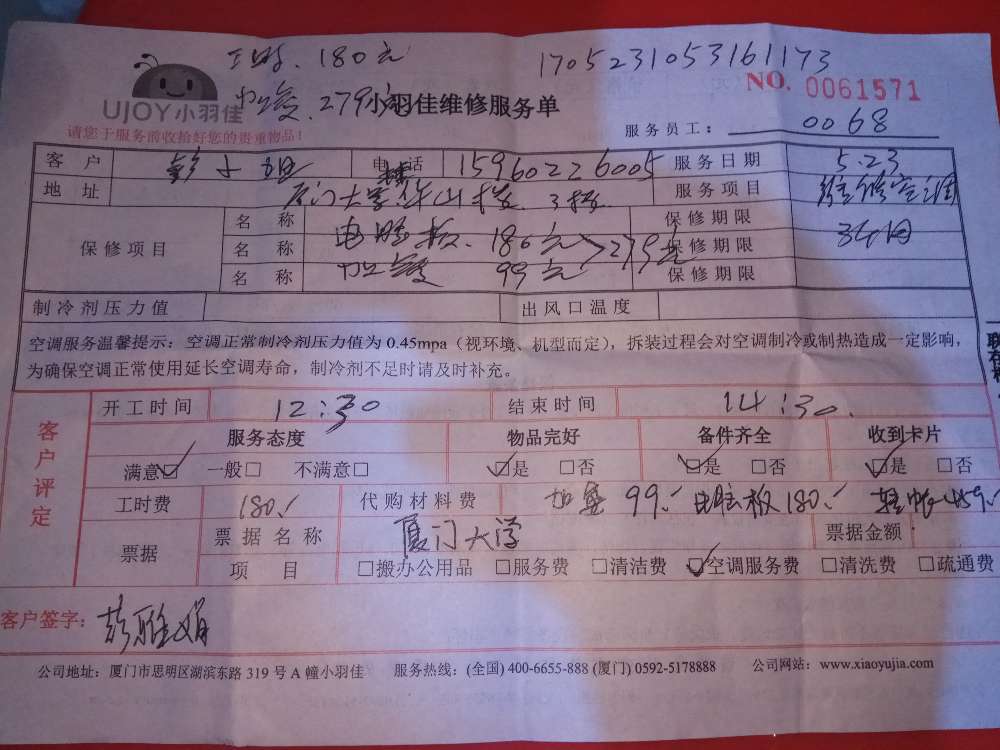 工时.180元 1705231053161173
UJOY小羽佳 加氟.279元 小羽佳维修服务单 NO. 0061571
请您于服务前收拾好您的贵重物品!
服务员工: 0068
客户 彭小姐 电话 15960226005 服务日期 5.23
地址 厦门大学 3楼 服务项目 维修空调
保修项目 名称 保修期限
名称 电脑板. 180元 >279元 保修期限 3个月
名称 加氟 99元 保修期限
制冷剂压力值 出风口温度
空调服务温馨提示:空调正常制冷剂压力值为0.45mpa(视环境、机型而定),拆装过程会对空调制冷或制热造成一定影响,
为确保空调正常使用延长空调寿命,制冷剂不足时请及时补充。
客户评定
开工时间 12:30 结束时间 14:30.
服务态度 物品完好 备件齐全 收到卡片
满意☑ 一般□ 不满意□ ☑是 □否 ☑是 □否 ☑是 □否
工时费 180. 代购材料费 加氟 99. 电脑板180. 转帐459.
票据 票据名称 厦门大学 票据金额
项目 □搬办公用品 □服务费 □清洁费 ☑空调服务费 □清洗费 □疏通费
客户签字: 彭雅娟
公司地址:厦门市思明区湖滨东路319号A幢小羽佳 服务热线:(全国)400-6655-888(厦门)0592-5178888 公司网站:www.xiaoyujia.com